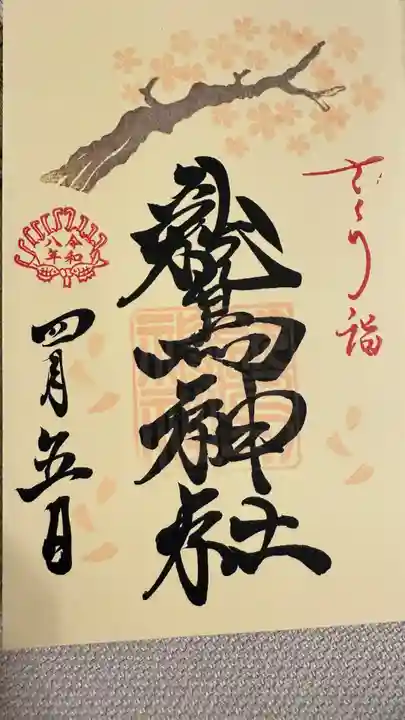 さくら詣
鷲神社
令和
八年
四月五日